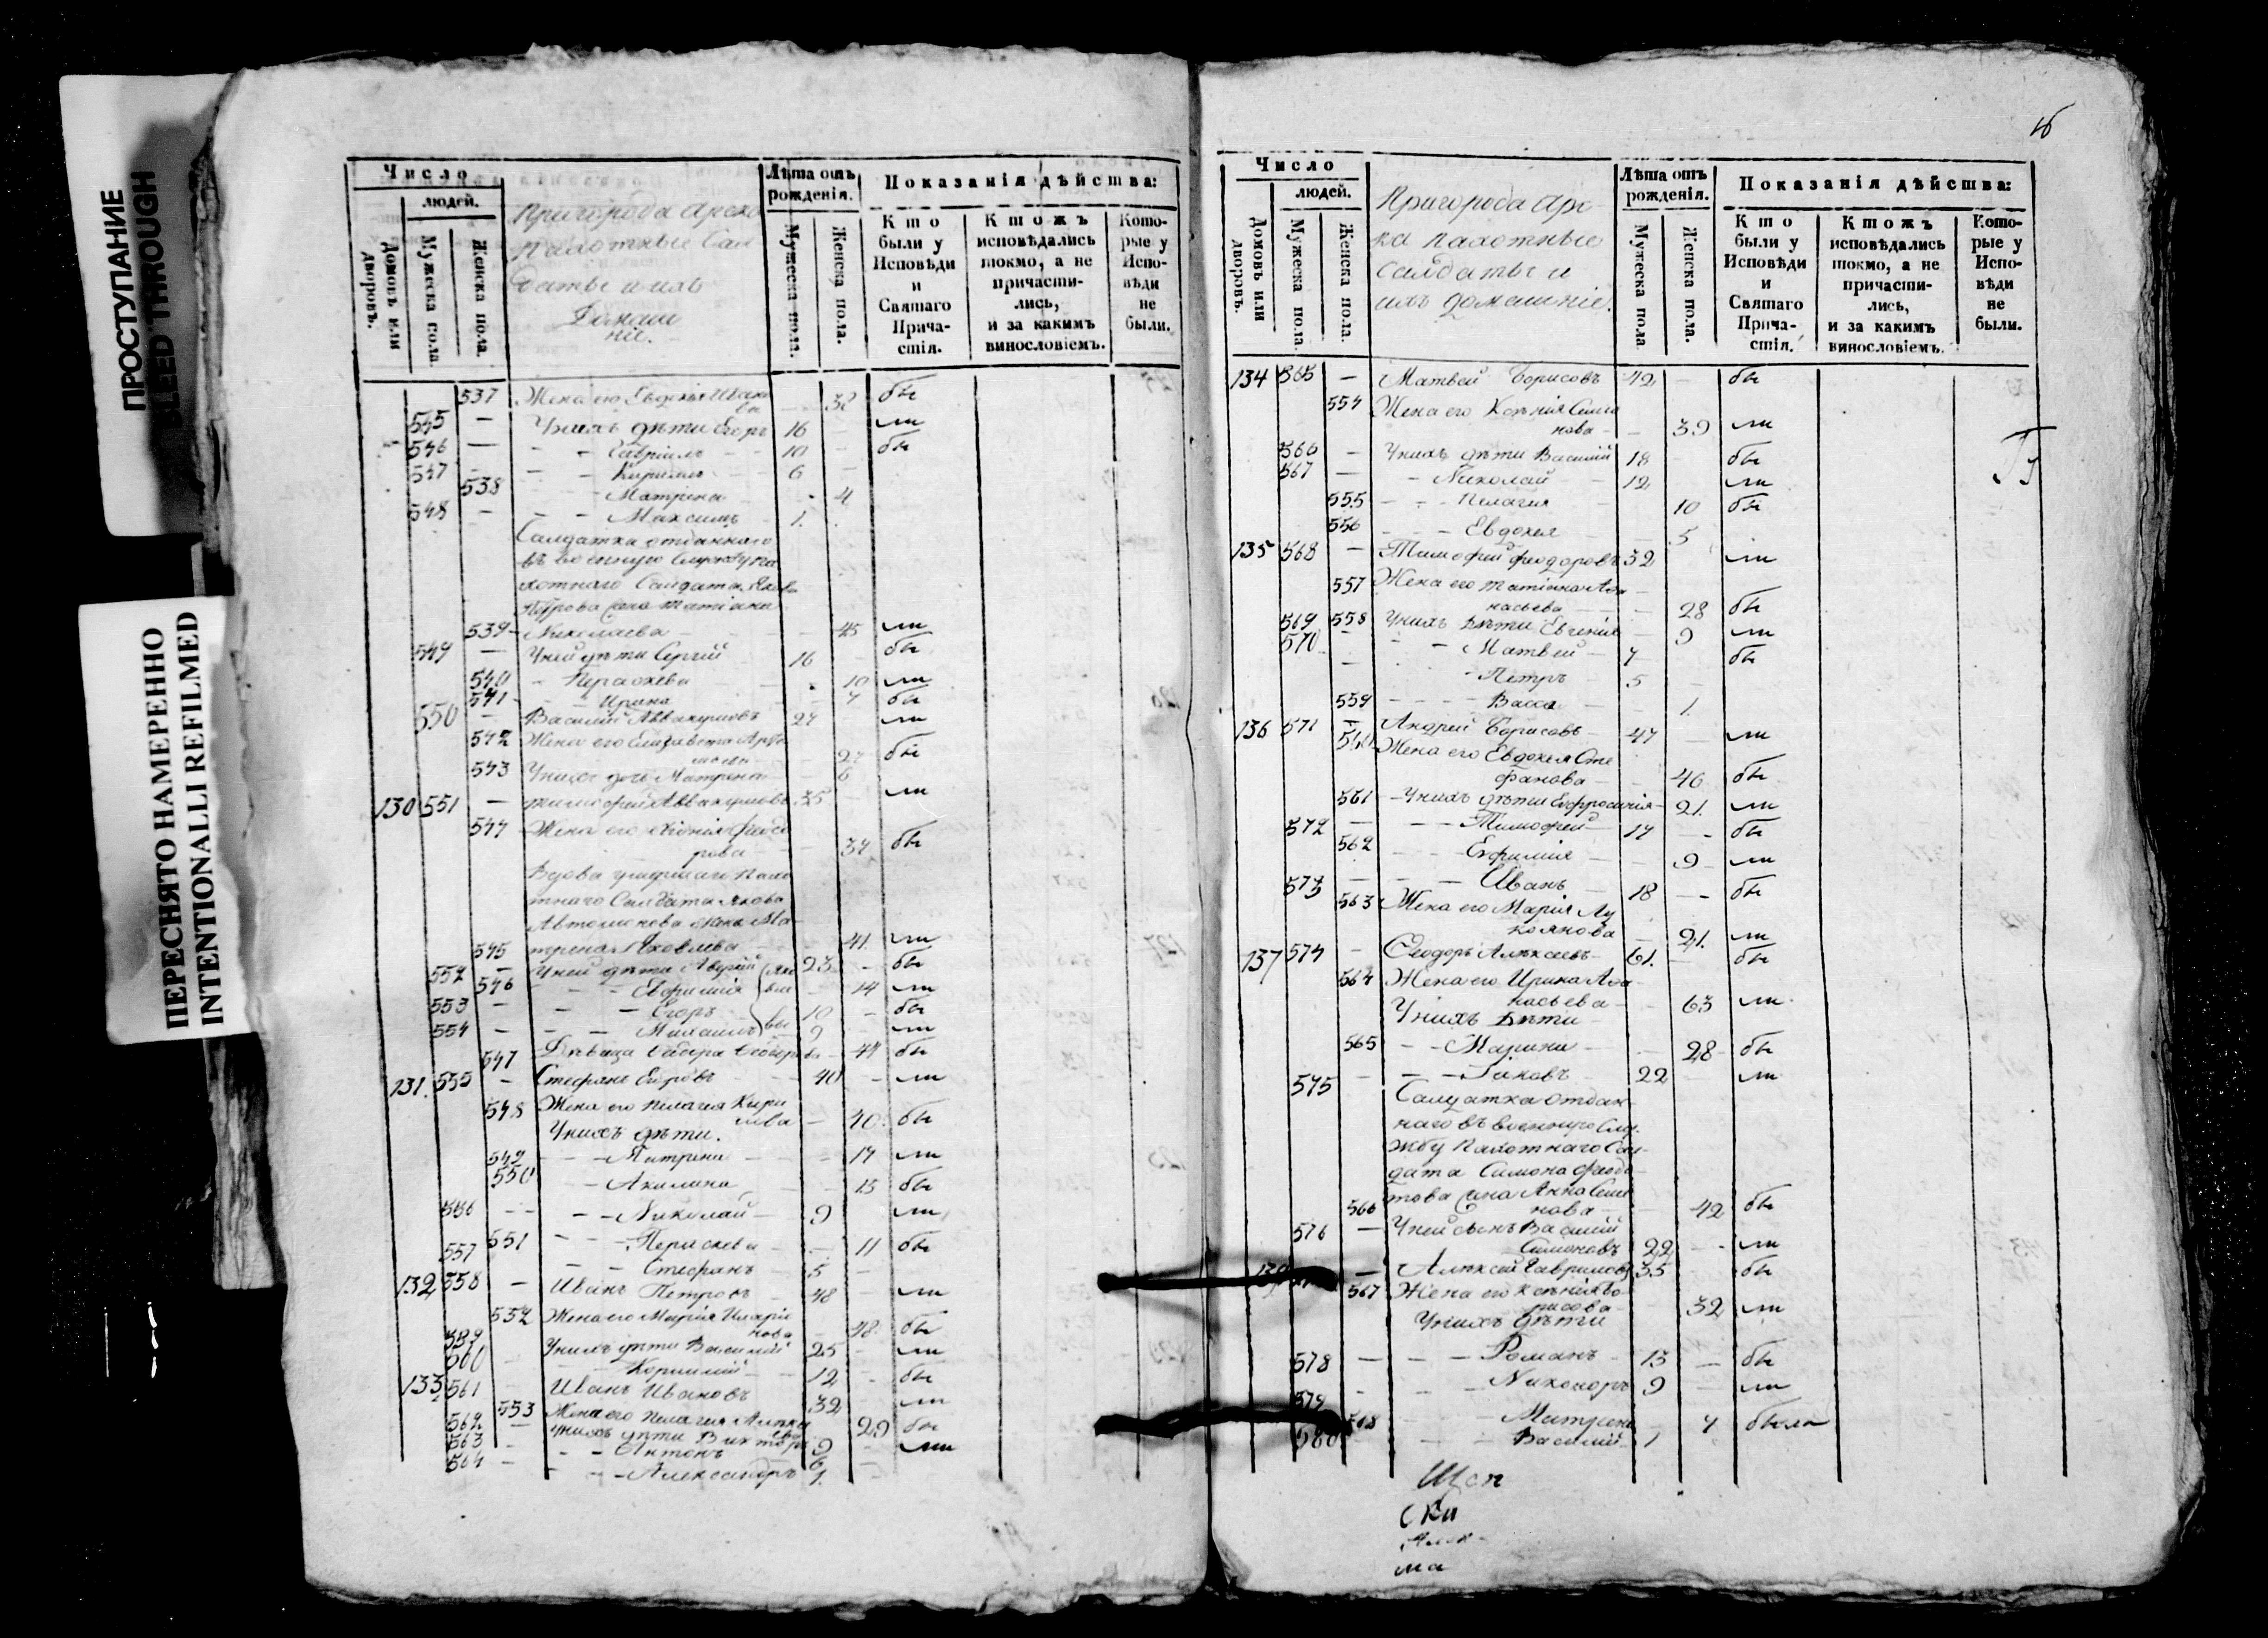 ПРОСТУПАНИЕ
BLEED THROUGH
ПЕРЕСНЯТО НАМЕРЕННО
INTENTIONALLI REFILMED
Число
людей.
Домовъ или дворовъ.
Мужеска пола.
Женска пола.
Пригорода Арска
пахотные Сал
даты и ихъ
Домаш
ніе.
Лѣта отъ рожденія.
Мужеска пола.
Женска пола.
Показанія дѣйства:
Кто были у Исповѣди и Святаго Причастія.
Ктожъ исповѣдались токмо, а не причастились, и за какимъ винословіемъ.
Которые у Исповѣди не были.
537 Жена его Евдокія Ивано
ва 38 бы
545 — У нихъ дѣти Егоръ 16 — ли
546 — Гавріилъ 10 — бы
547 — Кирилъ 6 —
538 Матрена 4
548 — Максимъ 1.
Салдатка отданнаго
въ военную службу па
хотнаго Салдата Якова
Петрова сына Татіана
539 — Николаева 45 ли
549 — У ней дѣти Сергій 16 бы
540 — Параскева 10 ли
541 — Ирина 7 бы
550 — Василій Аввакумовъ 27 ли
542 Жена его Елизавета
27 бы
543 У нихъ дочь Матрена 6
130 551 — Тимофей Аввакумовъ 35 — ли
544 Жена его Ѳеодо
рова 34 бы
Вдова умершаго пахо
тнаго Салдата Якова
Автомонова жена Ма
545 трена Яковлева 41. ли
552 — У ней дѣти 23 — бы
546 — Евфимія 14 ли
553 — Егоръ 10 — бы
554 — — Михаилъ 9 — ли
547 Дѣвица 44 бы
131. 555 — Стефанъ Егоровъ 40 — ли
548 Жена его Пелагея Кири
лова — 40. бы
У нихъ дѣти.
549 — Матрена 17 ли
550 — Акилина 15 бы
556 — Николай 9 ли
551 — Параскева 11 бы
557 — Стефанъ 5 —
132 558 — Иванъ Петровъ 48 — ли
552 Жена его Марія Иларіо
нова 48 бы
559 У нихъ дѣти Василій 25 — ли
560 — Корнилій 12 — бы
133 561 — Иванъ Ивановъ 32 — ли
553 Жена его Пелагея Алексе
ева 29 бы
562 — У нихъ дѣти Викторъ 9 — ли
563 — Антонъ 6 —
564 — Александръ 1.
16
Число
людей.
Домовъ или дворовъ.
Мужеска пола.
Женска пола.
Пригорода Арс
ка пахотные
Салдаты и
ихъ домашніе.
Лѣта отъ рожденія.
Мужеска пола.
Женска пола.
Показанія дѣйства:
Кто были у Исповѣди и Святаго Причастія.
Ктожъ исповѣдались токмо, а не причастились, и за какимъ винословіемъ.
Которые у Исповѣди не были.
134 565 — Матвей Борисовъ 42 — бы
554 Жена его Ксенія Семе
нова — 39 ли
566 — У нихъ дѣти Василій 18 бы
567 — Николай 12 ли
555 — Пелагия 10 бы
556 — Евдокея 5
135 568 — Тимофей Феодоровъ 32 ли
557 Жена его Татіана Афа
насьева 28 бы
569 558 У нихъ дѣти Евгенія — 9 ли
570 — Матвей 7 бы
— Петръ 5
559 — Васса 1.
136 571 — Андрей Борисовъ 47 ли
560 Жена его Евдокея Сте
фанова — 46 бы
561 — У нихъ дѣти Евфросинія — 21. ли
572 — Тимофей 14 — бы
562 — Евфимія 9 ли
573 — Иванъ 18 — бы
563 Жена его Марія Лу
коянова — 21. ли
137 574 — Феодоръ Алексеевъ 61. бы
564 Жена его Ирина Афа
насьева — 63 ли
У нихъ дѣти
565 — Марина — 28 бы
575 — Іаковъ 22 ли
Салдатка отдан
наго въ военную слу
жбу пахотнаго Сал
дата Симона Федо
това сына Анна Семе
566 нова 42 бы
576 — У ней сынъ Василій
Симоновъ 22 — ли
— Алексей Гавриловъ 35 бы
567 Жена его Ксенія Бо
рисова 32 ли
У нихъ дѣти
578 — Романъ 13 — бы
579 — Никоноръ 9 — ли
568 — Матрена — 7 была
580 — Василий 1